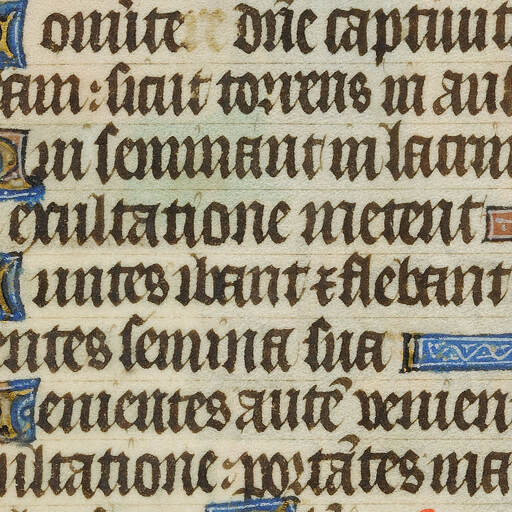 onũte dñe captiuit
am : sicut torrens in aus
ui seminant in lacrim
exultatione metent
untes ibant ⁊ flebant
entes semina sua
enientes autē uenien
ultatione : portātes ma